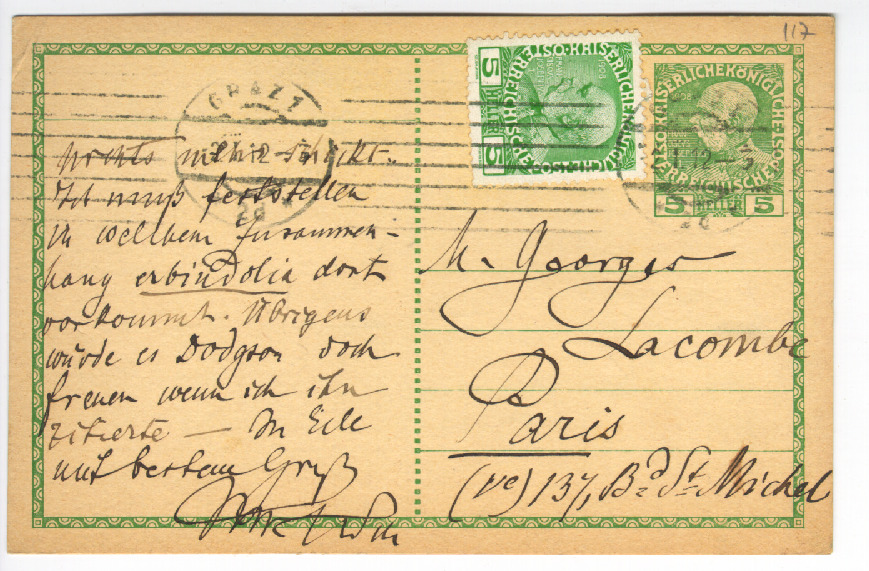 117
GRAZ 1
nichts mehr schickt.
Ich muß feststellen
in welchem Zusammen-
hang erbindolia dort
vorkommt. Übrigens
würde es Dodgson doch
freuen wenn ich ihn
zitierte — In Eile
mit bestem Gruß
M. Georges
Lacombe
Paris
(Ve) 137, Bd St Michel
5 HELLER 5
KAISERLICHE KÖNIGLICHE ÖSTERREICHISCHE POST
5 HELLER 5